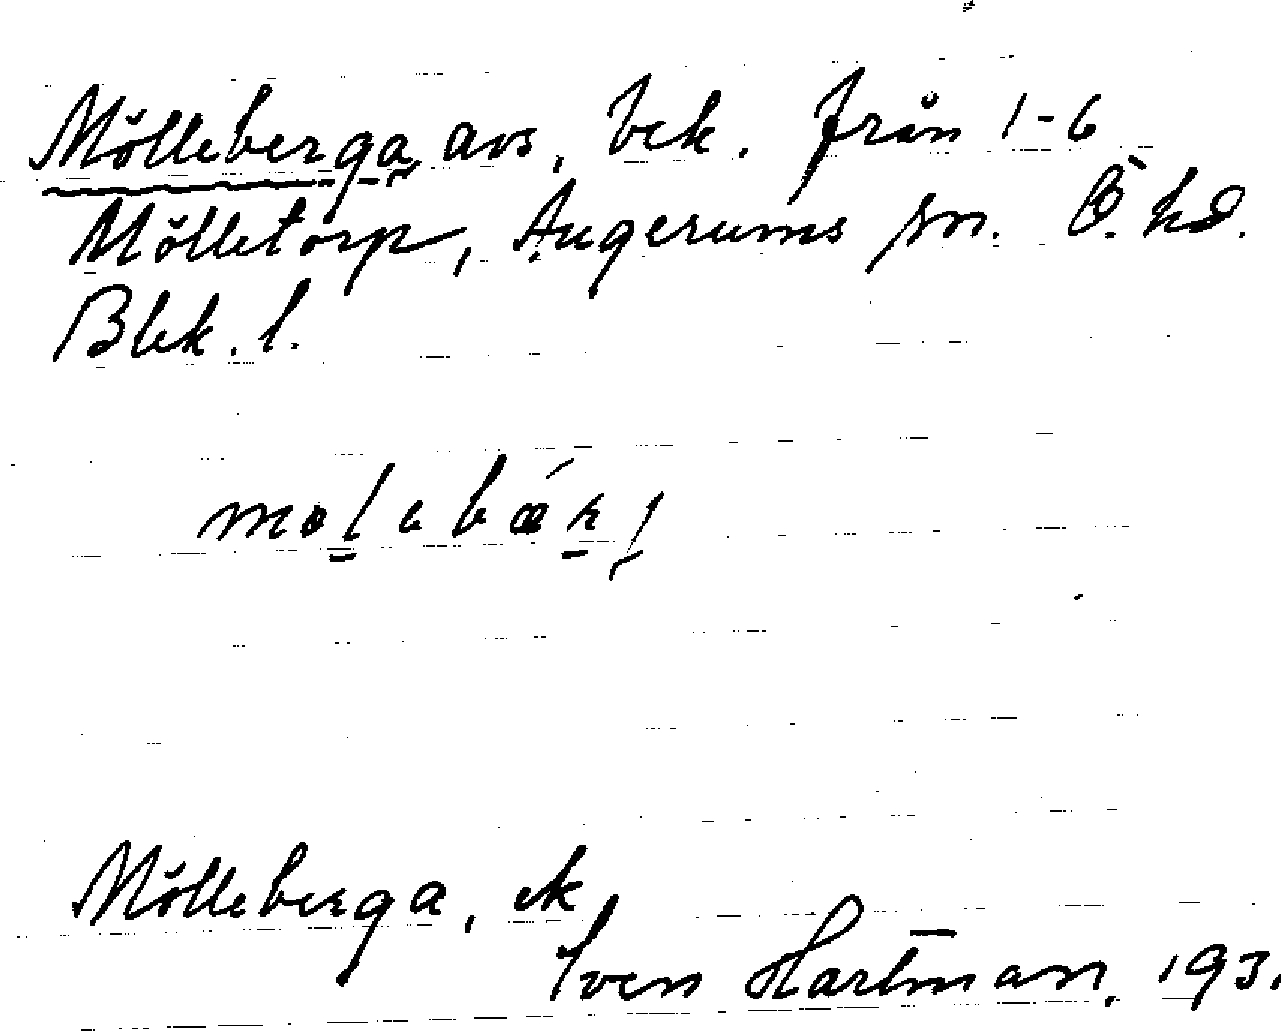 Mölleberga, avs, bek. från 1-6
Mölletorp, Augerums sn. Ö. hd.
Blek. l.
Mölleberga, ek
Sven Hartman, 193